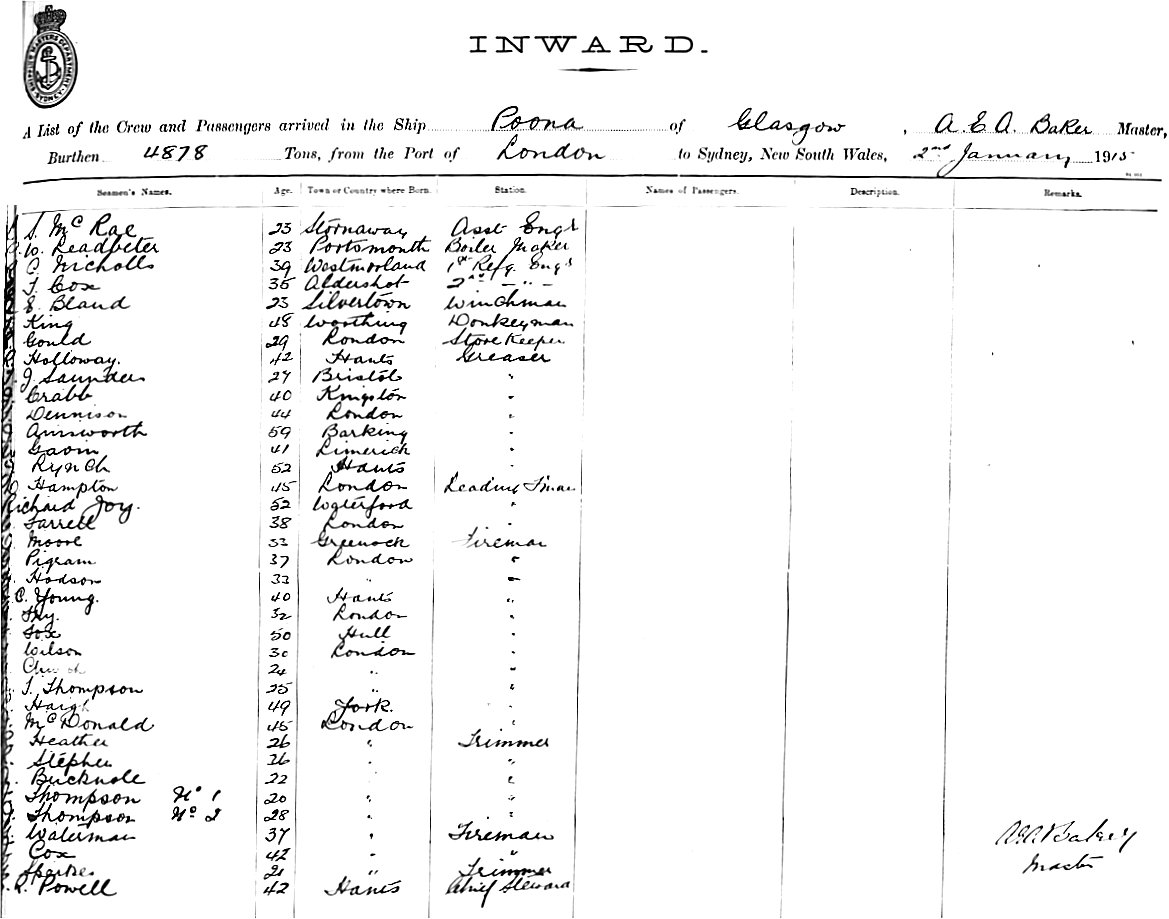 SHIPPING MASTERS DEPARTMENT SYDNEY
INWARD.
A List of the Crew and Passengers arrived in the Ship Poona of Glasgow, A. E. A. Baker Master,
Burthen 4878 Tons, from the Port of London to Sydney, New South Wales, 2nd January 1915
Seamen's Names. Age. Town or Country where Born. Station. Names of Passengers. Description. Remarks.
S. McRae 23 Stornaway Asst Engr
W. Leadbeter 23 Portsmouth Boiler Maker
C Nicholls 39 Westmorland 1st Refg. Engr
T. Cox 35 Aldershot 2nd - " -
E. Bland 23 Silvertown Winchman
King 48 Worthing Donkeyman
Gould 29 London Storekeeper
Holloway. 42 Hants Greaser
J Saunders 27 Bristol "
Crabb 40 Kingston "
Dennison 44 London "
Ainsworth 59 Barking "
Gavin 41 Limerick "
Rynch 52 Hants "
Hampton 45 London Leading Fman
Richard Joy. 52 Waterford "
Farrell 38 London "
Moore 33 Greenock Fireman
Pigram 37 London "
Hodson 33 " "
C. Young. 40 Hants "
32 London "
Fox 50 Hull "
Wilson 30 London "
24 " "
T. Thompson 25 " "
Haigh 49 York. "
McDonald 45 London "
Heather 26 " Trimmer
Stephen 26 " "
Bucknole 22 " "
Thompson No 1 20 " "
Thompson No 2 28 " "
Waterman 37 " Fireman
Cox 42 " "
Sparkes 21 " Trimmer
R. Powell 42 Hants Chief Steward
A.E.A. Baker
Master